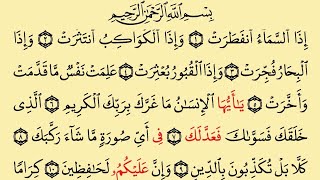 بِسْمِ اللَّهِ الرَّحْمَٰنِ الرَّحِيمِ
إِذَا السَّمَاءُ انفَطَرَتْ ١ وَإِذَا الْكَوَاكِبُ انتَثَرَتْ ٢ وَإِذَا
الْبِحَارُ فُجِّرَتْ ٣ وَإِذَا الْقُبُورُ بُعْثِرَتْ ٤ عَلِمَتْ نَفْسٌ مَّا قَدَّمَتْ
وَأَخَّرَتْ ٥ يَٰأَيُّهَا الْإِنسَٰنُ مَا غَرَّكَ بِرَبِّكَ الْكَرِيمِ ٦ الَّذِي
خَلَقَكَ فَسَوَّىٰكَ فَعَدَلَكَ ٧ فِي أَيِّ صُورَةٍ مَّا شَاءَ رَكَّبَكَ ٨
كَلَّا بَلْ تُكَذِّبُونَ بِالدِّينِ ٩ وَإِنَّ عَلَيْكُمْ لَحَٰفِظِينَ ١٠ كِرَامًا